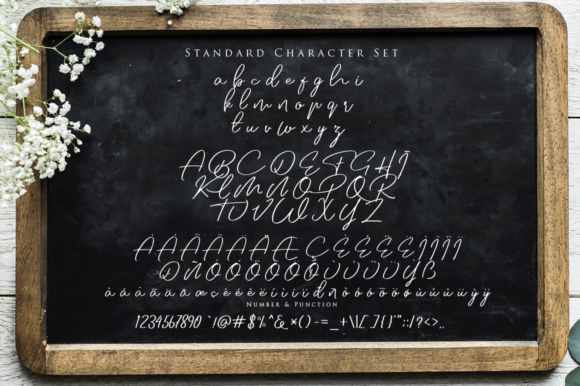 Standard Character Set
a b c d e f g h i
k l m n o p q r
t u r w x y z
A B C D E F G H I
K L M N O P Q R
T U V W X Y Z
À Á Â Ã Ä Å Æ Ç È É Ê Ë Ì Í Î Ï
Ð Ñ Ò Ó Ô Õ Ö Ø Ù Ú Û Ü Ý ß
à á â ã ä å æ ç è é ê ë ì í î ï ð ñ ò ó ô õ ö ø ù ú û ü ý ÿ
Number & Punction
1234567890 `!@#$%^&*()-=_+\|[]{}'":;/?<>..